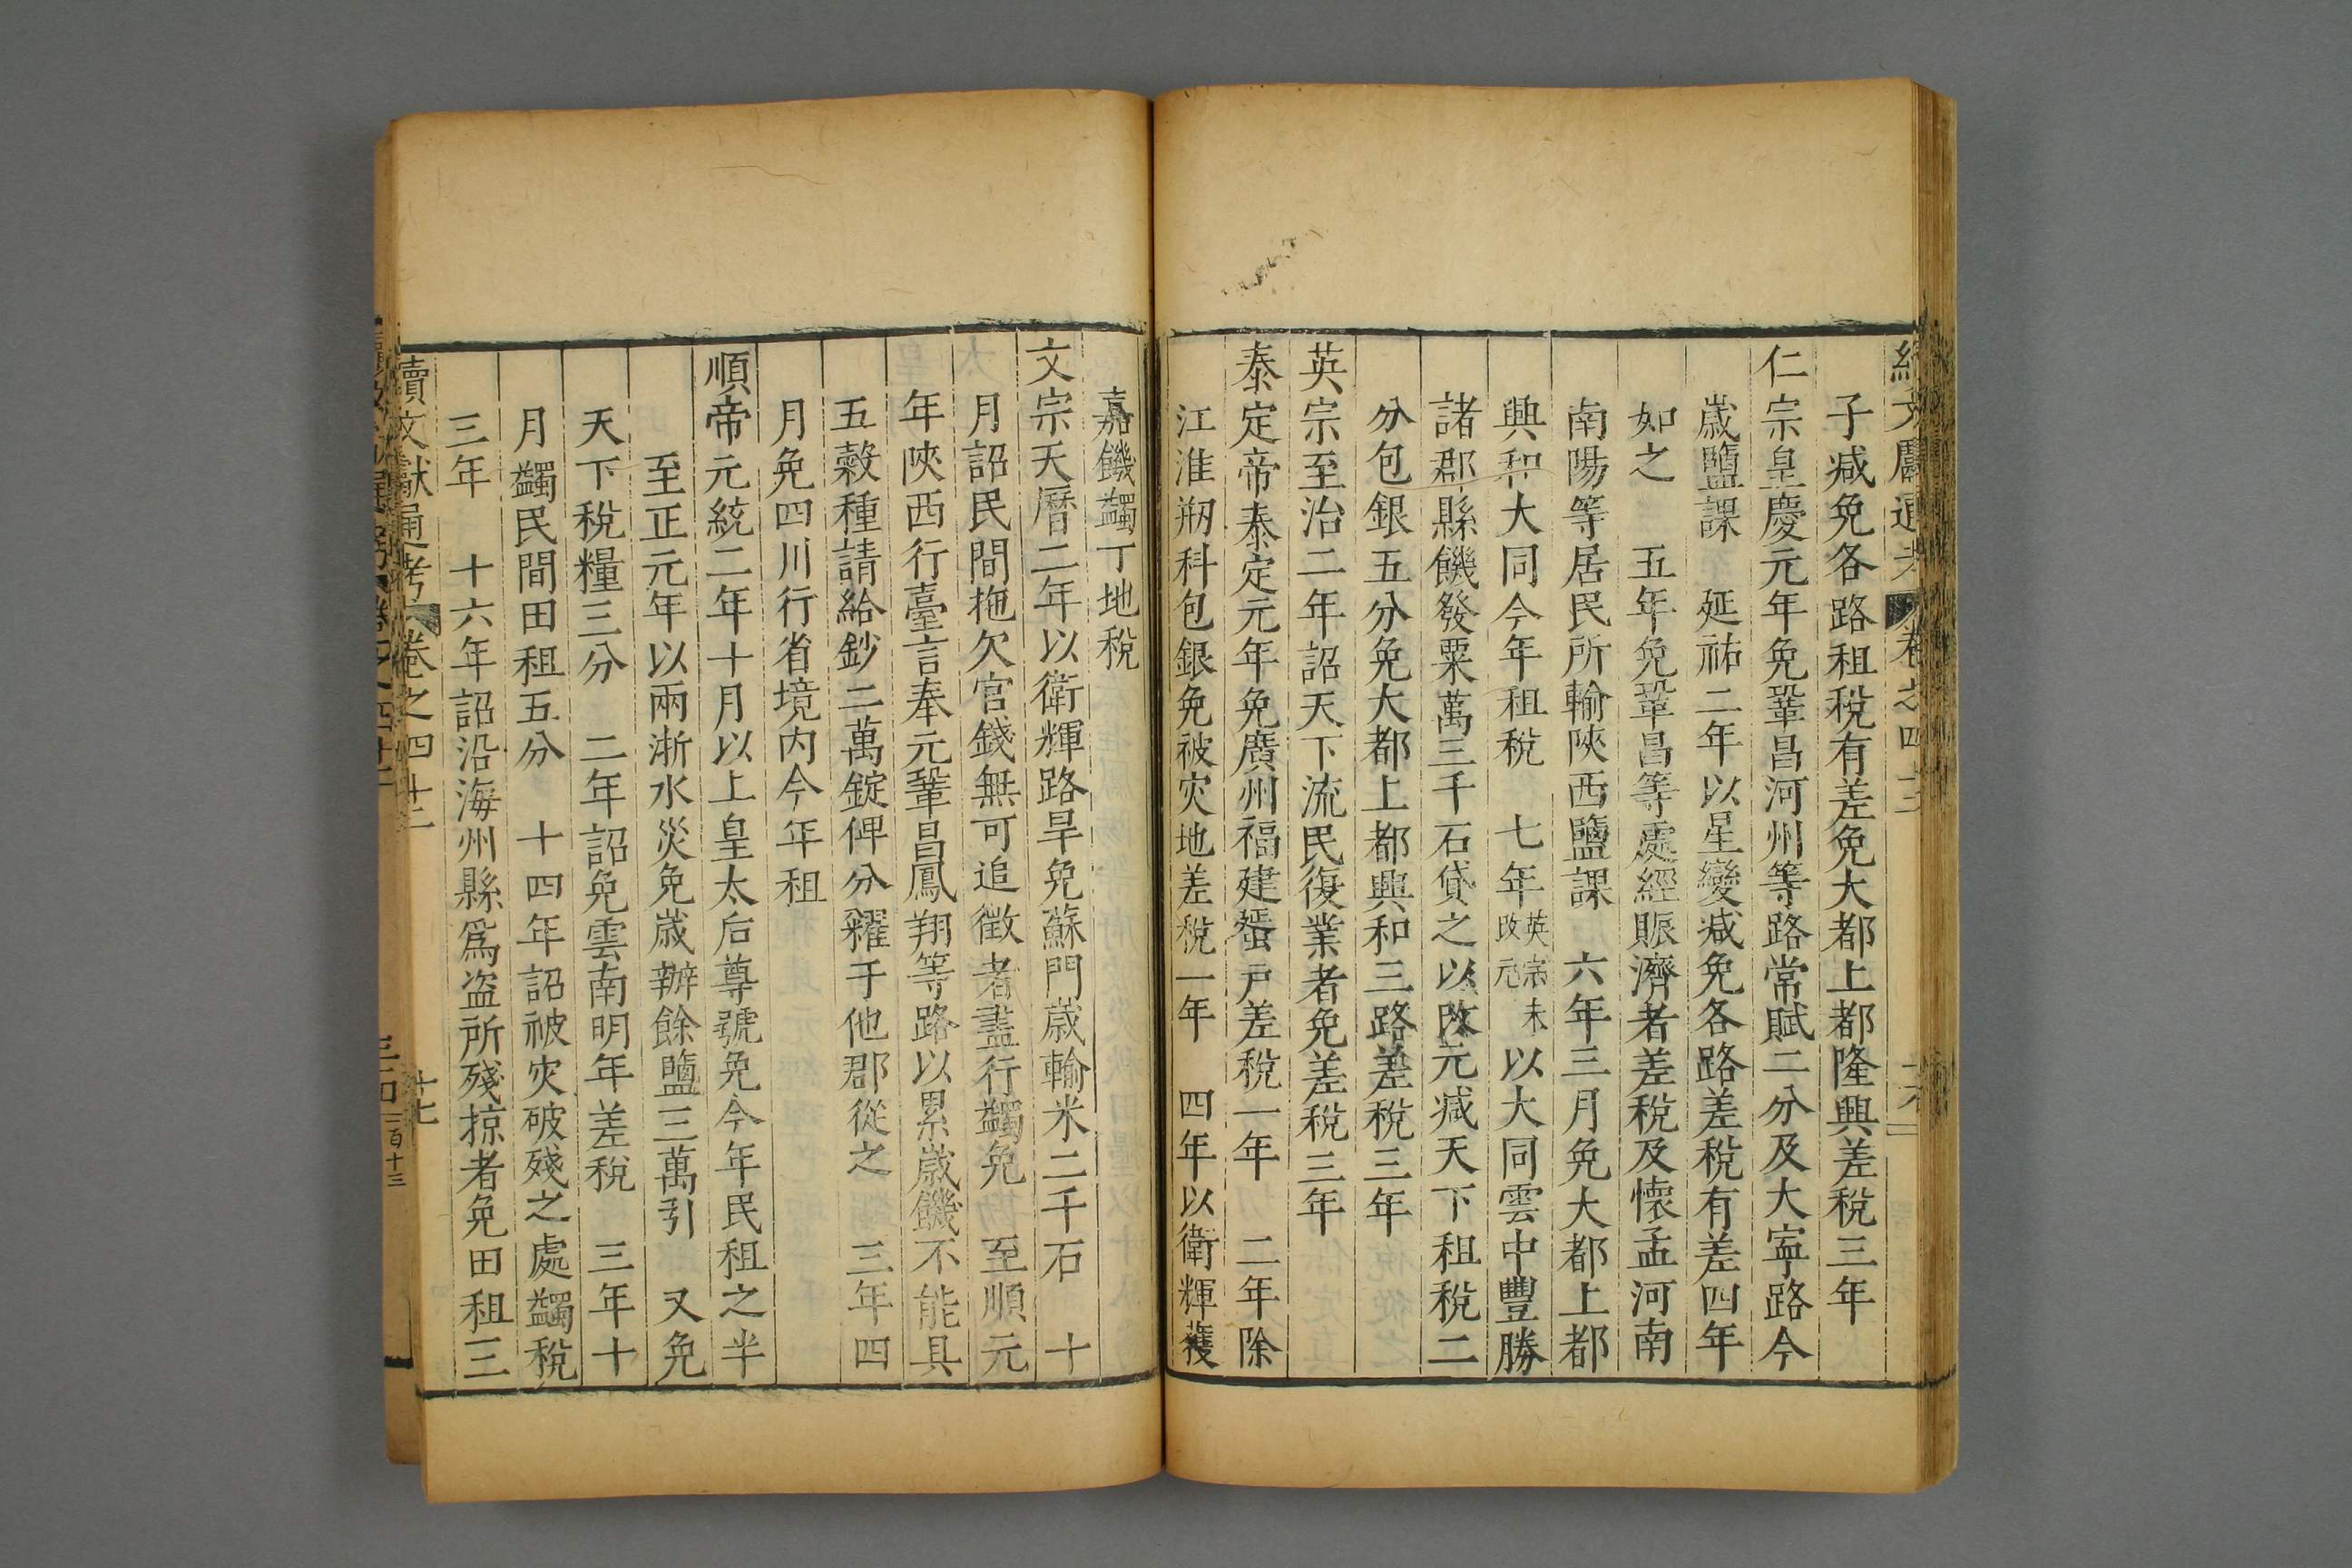 子減免各路租稅有差免大都上都隆興差稅三年
仁宗皇慶元年免鞏昌河州等路常賦二分及大寧路今
歲鹽課　延祐二年以星變減免各路差稅有差四年
如之　五年免鞏昌等處經賑濟者差稅及懷孟河南
南陽等居民所輸陝西鹽課　六年三月免大都上都
興和大同今年租稅　七年英宗未改元以大同雲中豐勝
諸郡縣饑發粟萬三千石貸之以改元減天下租稅二
分包銀五分免大都上都興和三路差稅三年
英宗至治二年詔天下流民復業者免差稅三年
泰定帝泰定元年免廣州福建蜑戸差稅一年　二年除
江淮剏科包銀免被灾地差稅一年　四年以衛輝獲
嘉饑蠲丁地稅
文宗天曆二年以衛輝路旱免蘇門歲輸米二千石　十
月詔民間拖欠官錢無可追徵者盡行蠲免　至順元
年陝西行臺言奉元鞏昌鳳翔等路以累歲饑不能具
五穀種請給鈔二萬錠俾分糴于他郡從之　三年四
月免四川行省境内今年租
順帝元統二年十月以上皇太后尊號免今年民租之半
至正元年以兩浙水災免歲辦餘鹽三萬引　又免
天下稅糧三分　二年詔免雲南明年差稅　三年十
月蠲民間田租五分　十四年詔被灾破殘之處蠲稅
三年　十六年詔沿海州縣爲盗所殘掠者免田租三
續文獻通考　卷之四十二　十七